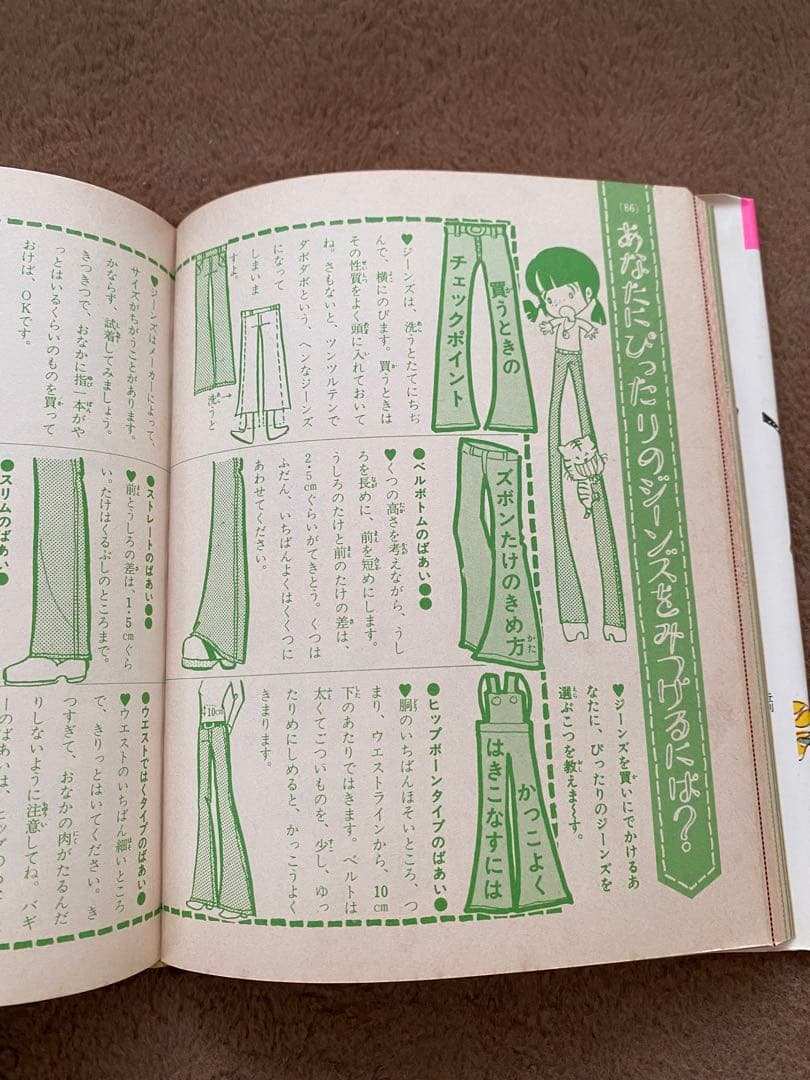 (86)
あなたにぴったりのジーンズをみつけるには?
♥ジーンズを買いにでかけるあ
なたに、ぴったりのジーンズを
選ぶこつを教えま〜す。
買うときの
チェックポイント
♥ジーンズは、洗うとたてにちぢ
んで、横にのびます。買うときは
その性質をよく頭に入れておいて
ね。さもないと、ツンツルテンで
ダボダボという、ヘンなジーンズ
になって
しまいま
すよ。
洗うと
♥ジーンズはメーカーによって、
サイズがちがうことがあります。
かならず、試着してみましょう。
きつきつで、おなかに指一本がや
っとはいるくらいのものを買って
おけば、OKです。
ズボンたけのきめ方
●ベルボトムのばあい●●
♥くつの高さを考えながら、うし
ろを長めに、前を短めにします。
うしろのたけと前のたけの差は、
2・5cmぐらいがてきとう。くつは
ふだん、いちばんよくはくくつに
あわせてください。
●ストレートのばあい●●
♥前とうしろの差は、1・5cmぐら
い。たけはくるぶしのところまで。
●スリムのばあい●
かっこよく
はきこなすには
●ヒップボーンタイプのばあい●
♥胴のいちばんほそいところ、つ
まり、ウエストラインから、10cm
下のあたりではきます。ベルトは
太くてごついものを、少し、ゆっ
たりめにしめると、かっこうよく
きまります。
10cm
●ウエストではくタイプのばあい●
♥ウエストのいちばん細いところ
で、きりっとはいてください。き
つすぎて、おなかの肉がたるんだ
りしないように注意してね。バギ
ーのばあいは、ヒップの